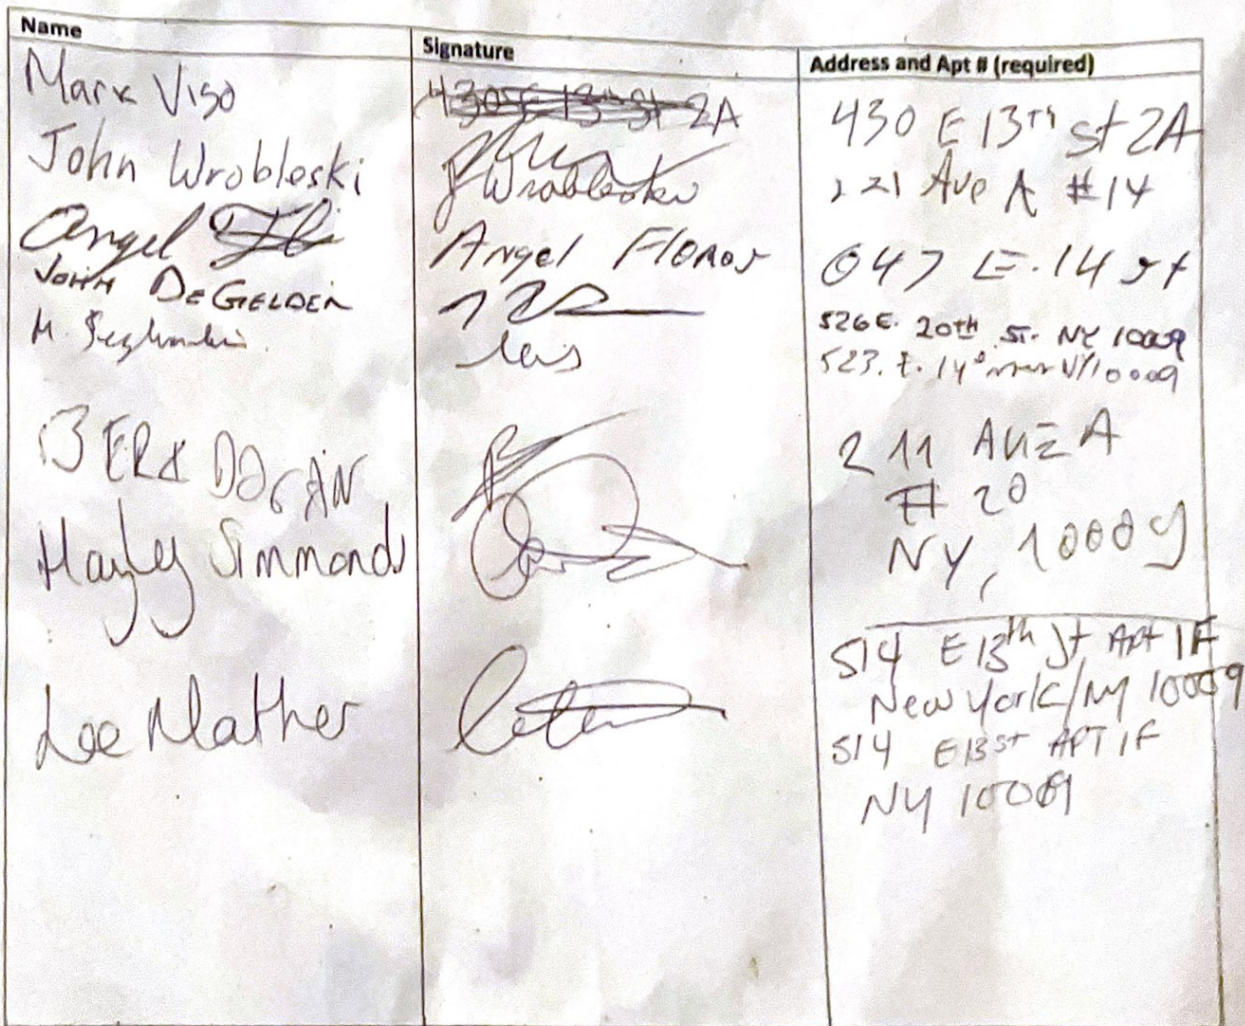 Name Signature Address and Apt # (required)
Mark Viso 430 E 13th St 2A 430 E 13th St 2A
John Wrobleski J Wrobleski 221 Ave A #14
Angel Angel Flores 647 E. 14 st
John DeGelder 526 E. 20th St. NY 10009
M. 523. E. 14 NY 10009
BERK DOGAN 211 AVE A
# 20
NY, 10009
Hayley Simmonds 514 E 13th St Apt 1F
New York/NY 10009
Lee Mather 514 E 13 St APT 1F
NY 10009